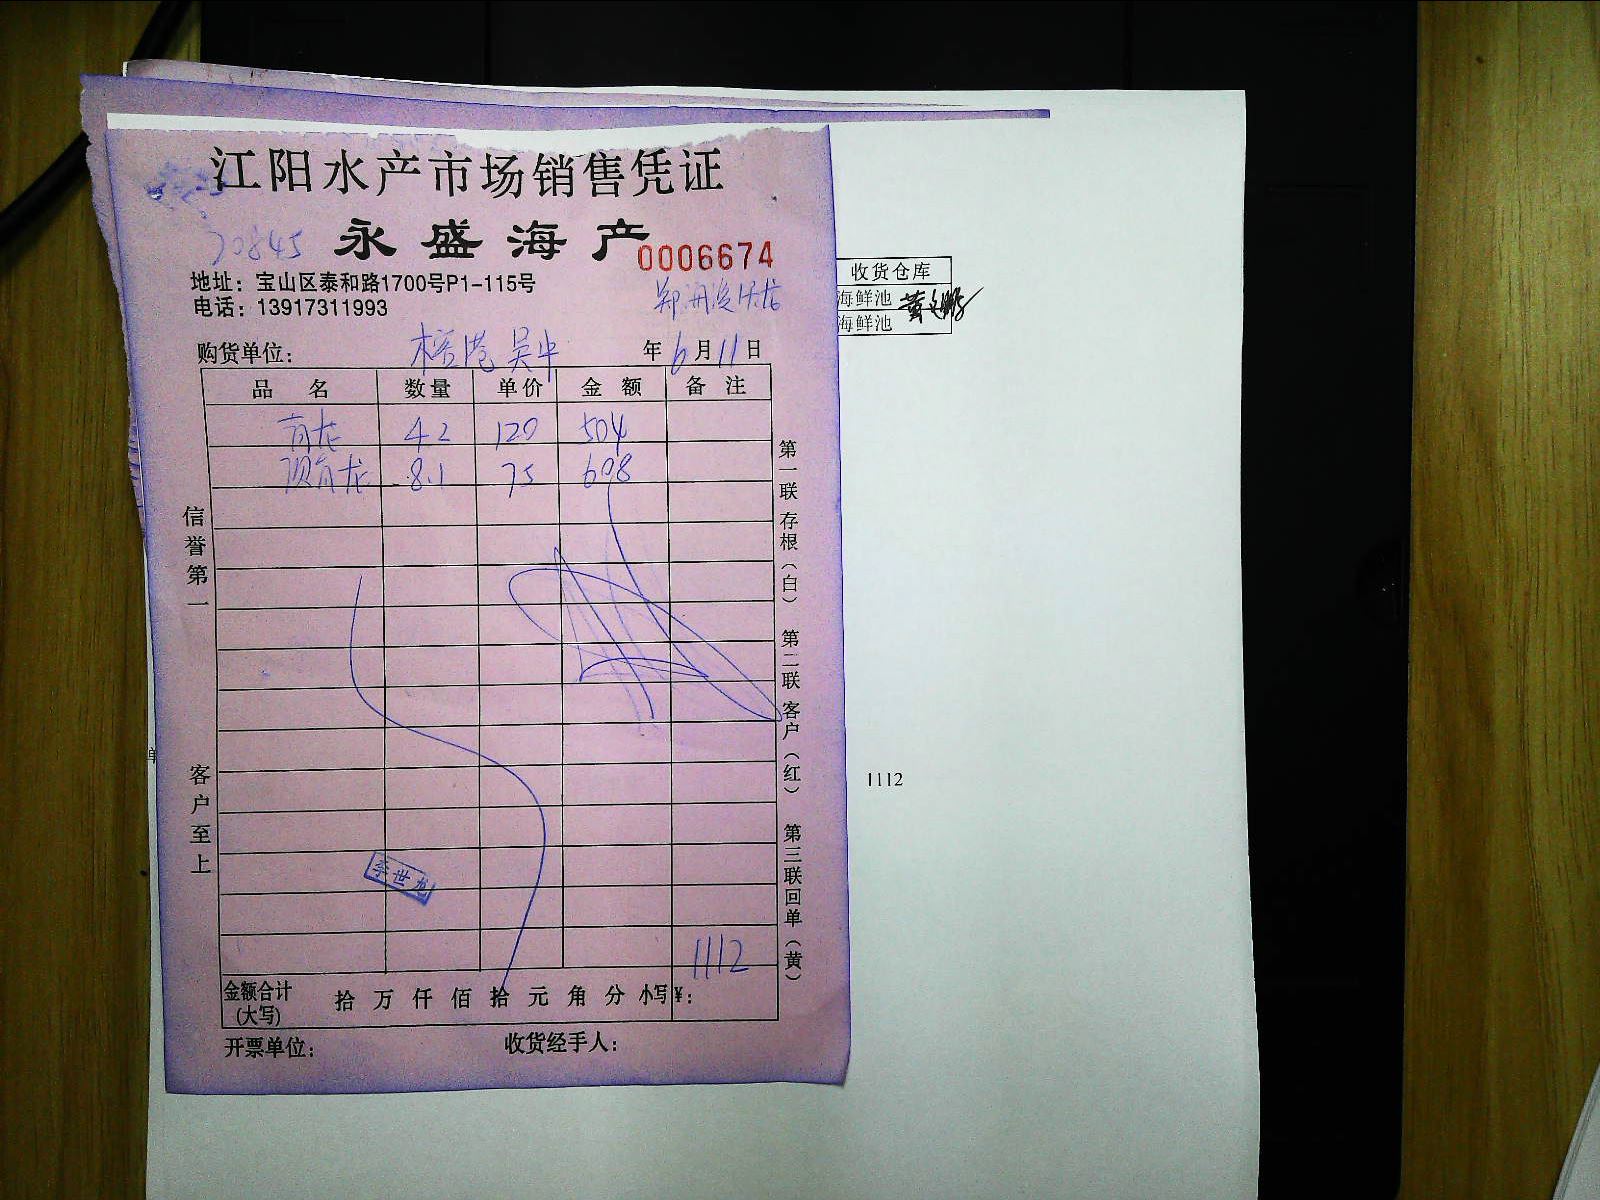 江阳水产市场销售凭证
70845 永盛海产 0006674
地址：宝山区泰和路1700号P1-115号
电话：13917311993
购货单位： 吴中 年 6 月 11 日
品 名 数量 单价 金 额 备 注
青龙 4.2 120 504
青龙 8.1 75 608
信誉第一
客户至上
第一联存根（白） 第二联客户（红） 第三联回单（黄）
李世龙
1112
金额合计(大写) 拾 万 仟 佰 拾 元 角 分 小写¥：
开票单位： 收货经手人：
收货仓库
海鲜池
海鲜池
1112
单